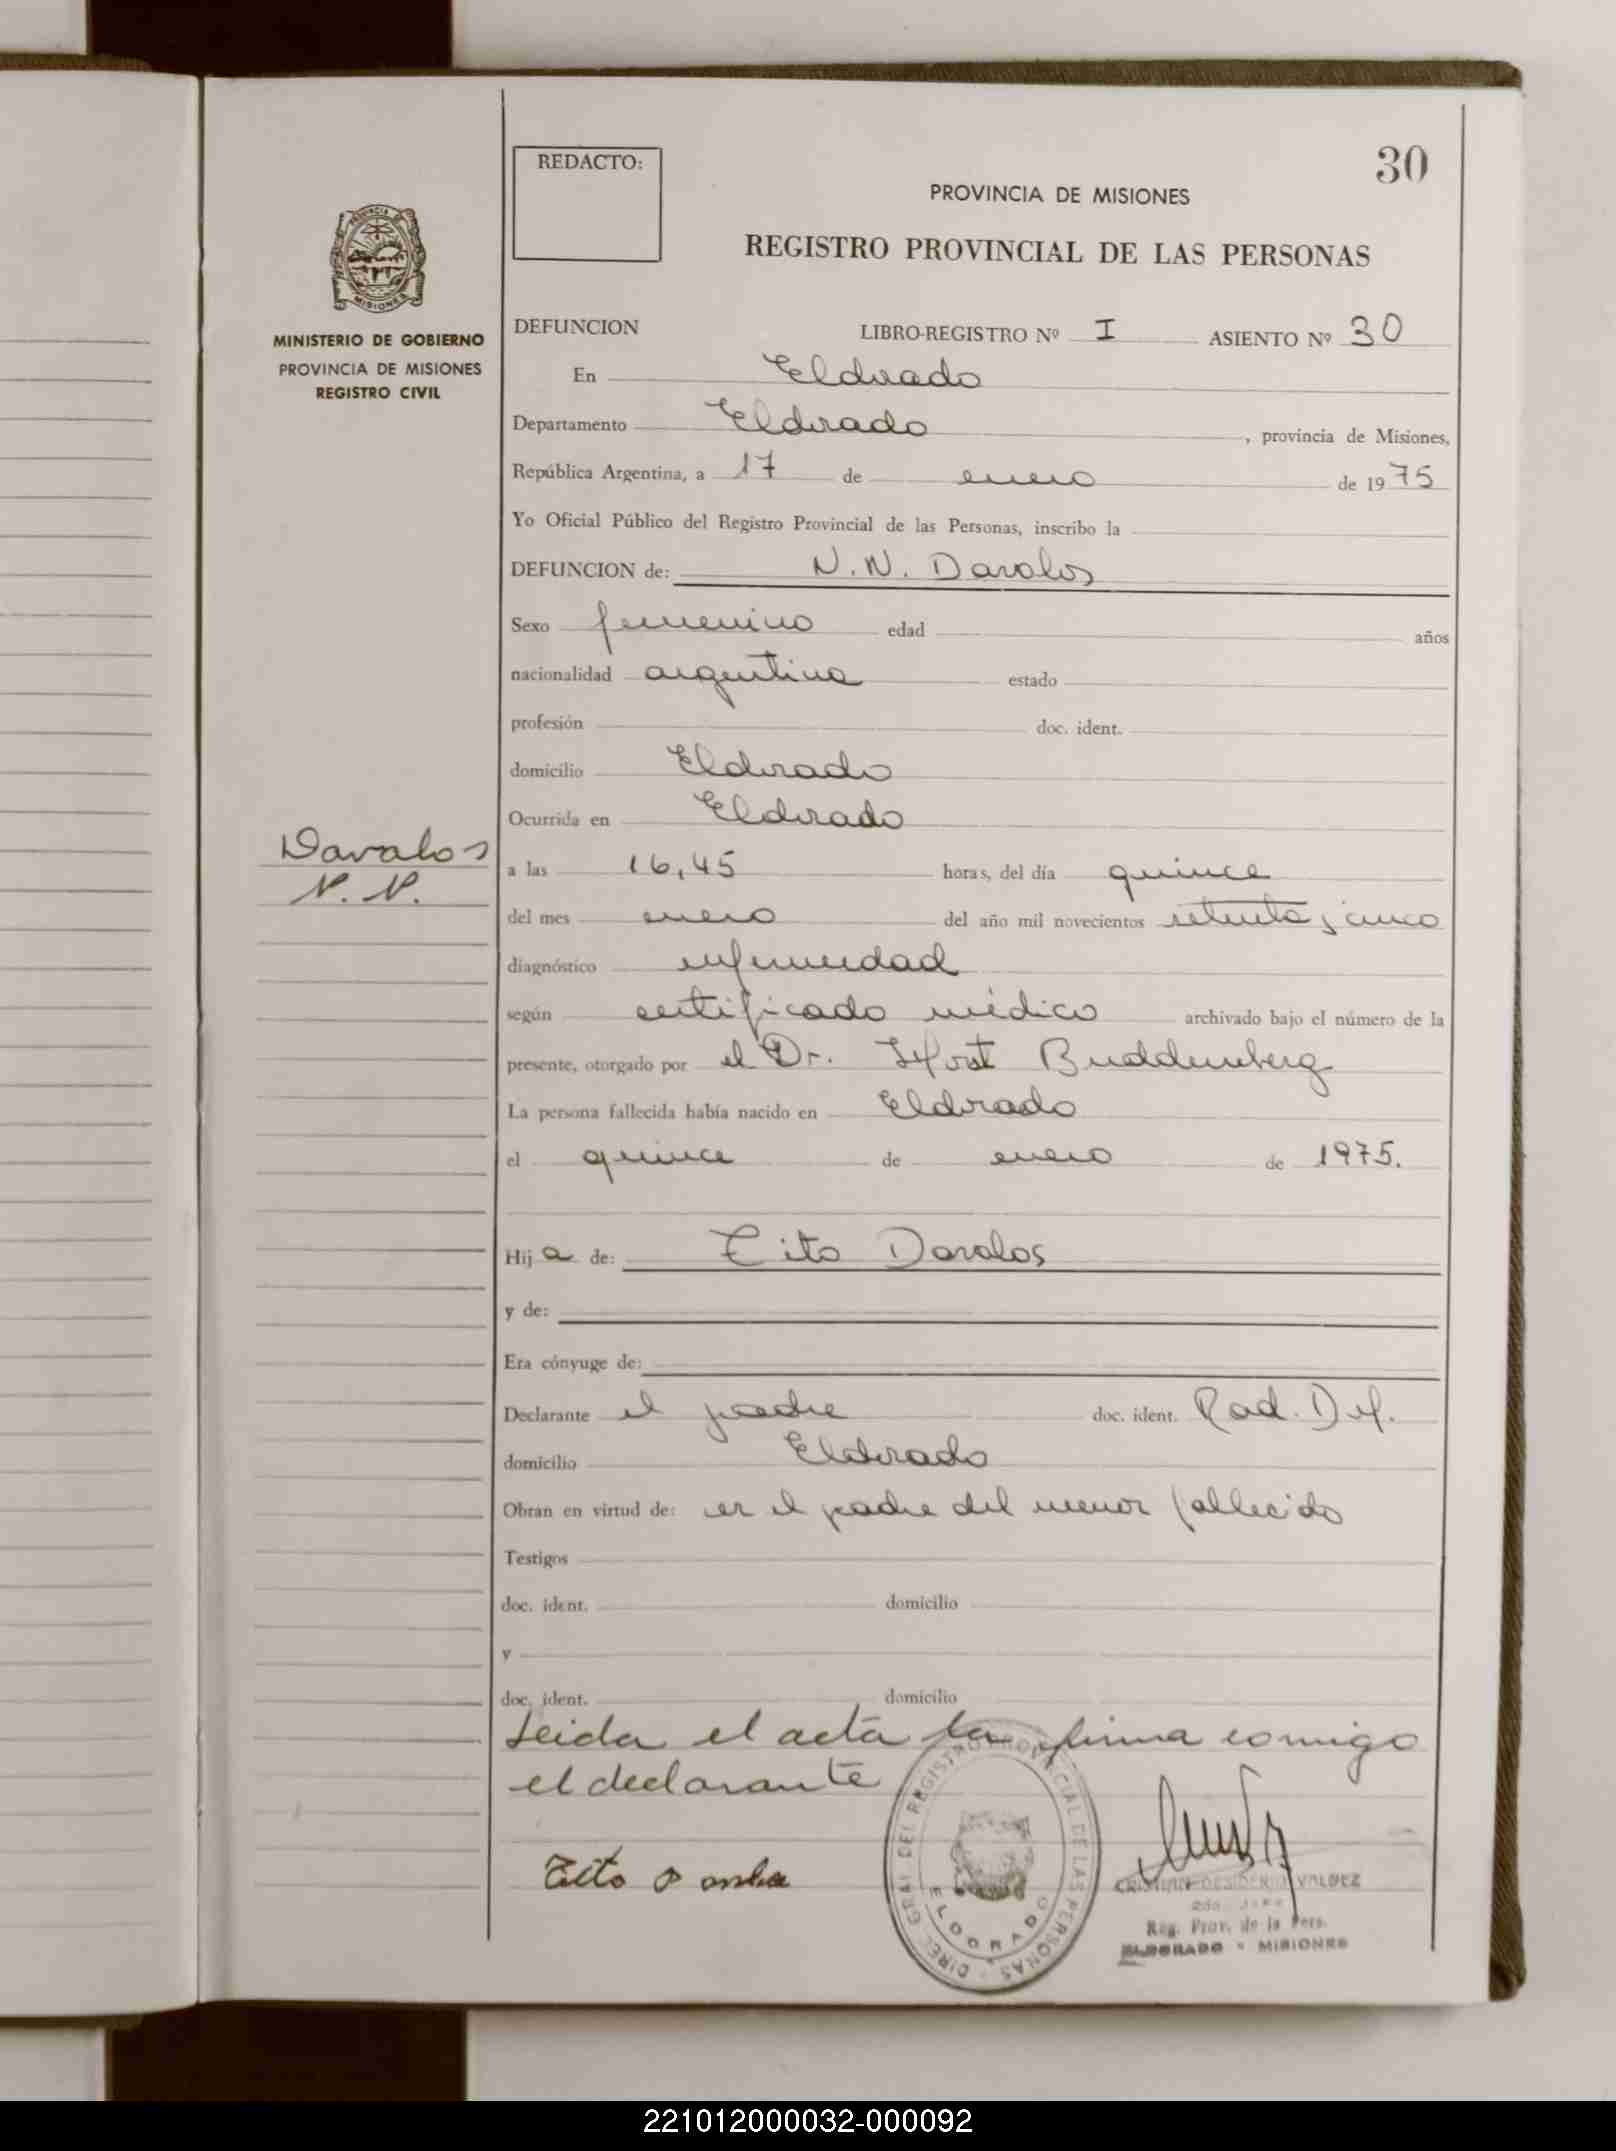 30
REDACTO:
PROVINCIA DE MISIONES
REGISTRO PROVINCIAL DE LAS PERSONAS
PROVINCIA DE MISIONES
MINISTERIO DE GOBIERNO
PROVINCIA DE MISIONES
REGISTRO CIVIL
DEFUNCION LIBRO-REGISTRO Nº I ASIENTO Nº 30
En Eldorado
Departamento Eldorado, provincia de Misiones,
República Argentina, a 17 de enero de 1975
Yo Oficial Público del Registro Provincial de las Personas, inscribo la
DEFUNCION de: N.N. Davalos
Sexo femenino edad años
nacionalidad argentina estado
profesión doc. ident.
domicilio Eldorado
Ocurrida en Eldorado
Davalos
N.N.
a las 16,45 horas, del día quince
del mes enero del año mil novecientos setenta y cinco
diagnóstico enfermedad
según certificado médico archivado bajo el número de la
presente, otorgado por el Dr. Horst Buddemberg
La persona fallecida había nacido en Eldorado
el quince de enero de 1975.
Hija de: Tito Davalos
y de:
Era cónyuge de:
Declarante el padre doc. ident.
domicilio Eldorado
Obran en virtud de: ser el padre del menor fallecido
Testigos
doc. ident. domicilio
y
doc. ident. domicilio
Leida el acta la firma comigo
el declarante
Tito
DIREC. GRAL. DEL REGISTRO PROVINCIAL DE LAS PERSONAS
ELDORADO
CRISTIAN DESIDERIO VALDEZ
Reg. Prov. de la Pers.
ELDORADO - MISIONES
221012000032-000092